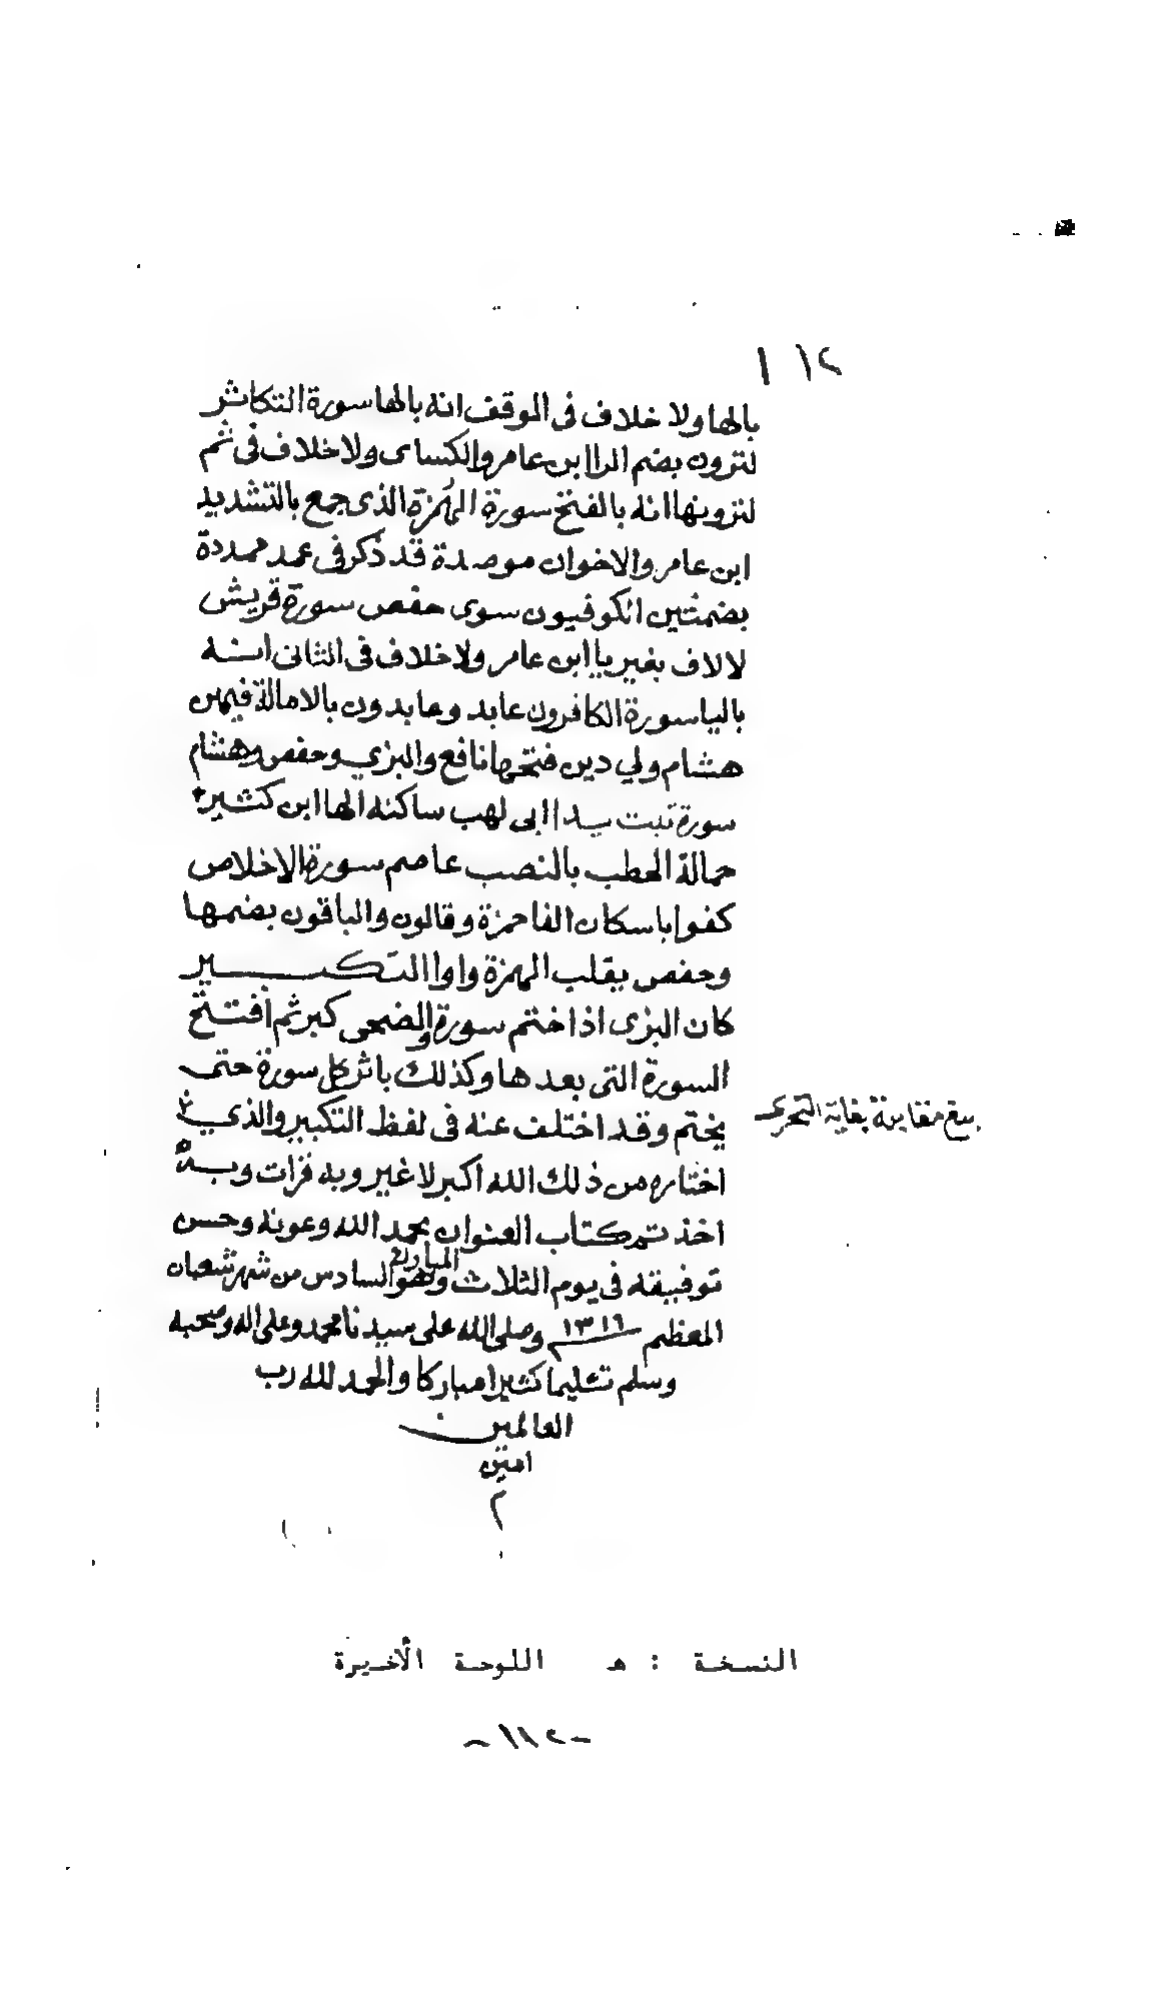 ١١٢
بالها ولا خلاف فى الموقف انه بالها سورة التكاثر
لترون بضم الرا ابن عامر والكساى ولا خلاف فى ثم
لترونها انه بالفتح سورة الهُمزة الذى جمع بالتشديد
ابن عامر والاخوان موصدة قد ذكر فى عمد ممددة
بضمتين الكوفيون سوى حفص سورة قريش
لالاف بغير يا ابن عامر ولا خلاف فى الثانى انه
باليا سورة الكافرون عابد وعابدون بالامالة فيهن
هشام ولي دين فتحها نافع والبزي وحفص وهشام
سورة تبت يدا ابى لهب ساكنه الها ابن كثير
حمالة الحطب بالنصب عاصم سورة الاخلاص
كفوا باسكان الفا حمزة وقالون والباقون بضمها
وحفص يقلب الهمزة واوا التكبير
كان البزى اذا ختم سورة والضحى كبر ثم افتتح
السورة التى بعدها وكذلك باثر كل سورة حتى
يختم وقد اختلف عنه فى لفظ التكبير والذي
بلغ مقابلة بغاية التحرى
اختاره من ذلك الله اكبر لا غير وبه قرات وبه
اخذ تم كتاب العنوان بحمد الله وعونه وحسن
توفيقه فى يوم الثلاث المبارك وهو السادس من شهر شعبان
المعظم ١٣١٦ وصلى الله على سيدنا محمد وعلى اله وصحبه
وسلم تسليما كثيرا مباركا والحمد لله رب
العالمين
امين
م
النسخة : هـ اللوحة الأخيرة
-١١٢-